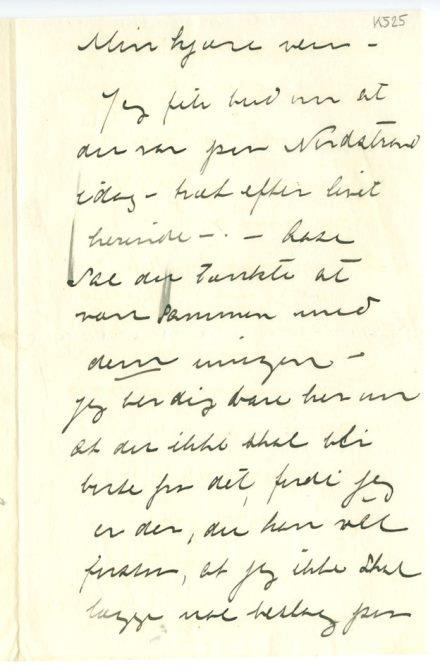 K525
Min kjære ven –
Jeg fik bud om at
du var paa Nordstrand
idag – træt efter livet
herinde – . –
du tænkte at
være sammen med
dem imorgen –
jeg ber dig bare her om
at du ikke skal bli
borte fra det, fordi jeg
er der, du kan vel
forstaa, at jeg ikke skal
lægge noe beslag paa